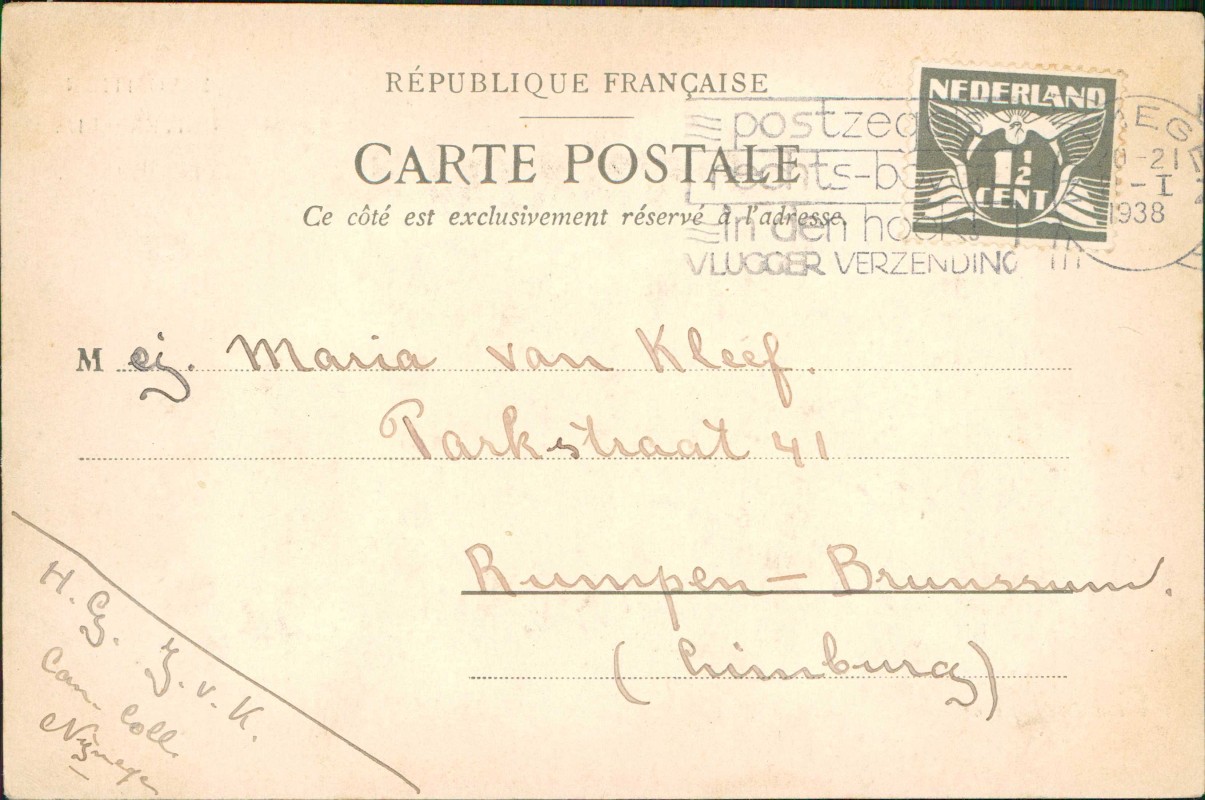 RÉPUBLIQUE FRANÇAISE
CARTE POSTALE
Ce côté est exclusivement réservé à l'adresse
NEDERLAND
1½
CENT
postzeg
rechts-bov
in den hoek!
VLUGGER VERZENDING
EG
10-21
-I
1938
M ej. Maria van Kleef.
Parkstraat 41
Rumpen-Brunssum.
(Limburg)
H. G. J. v. K.
Can. Coll.
Nijmegen